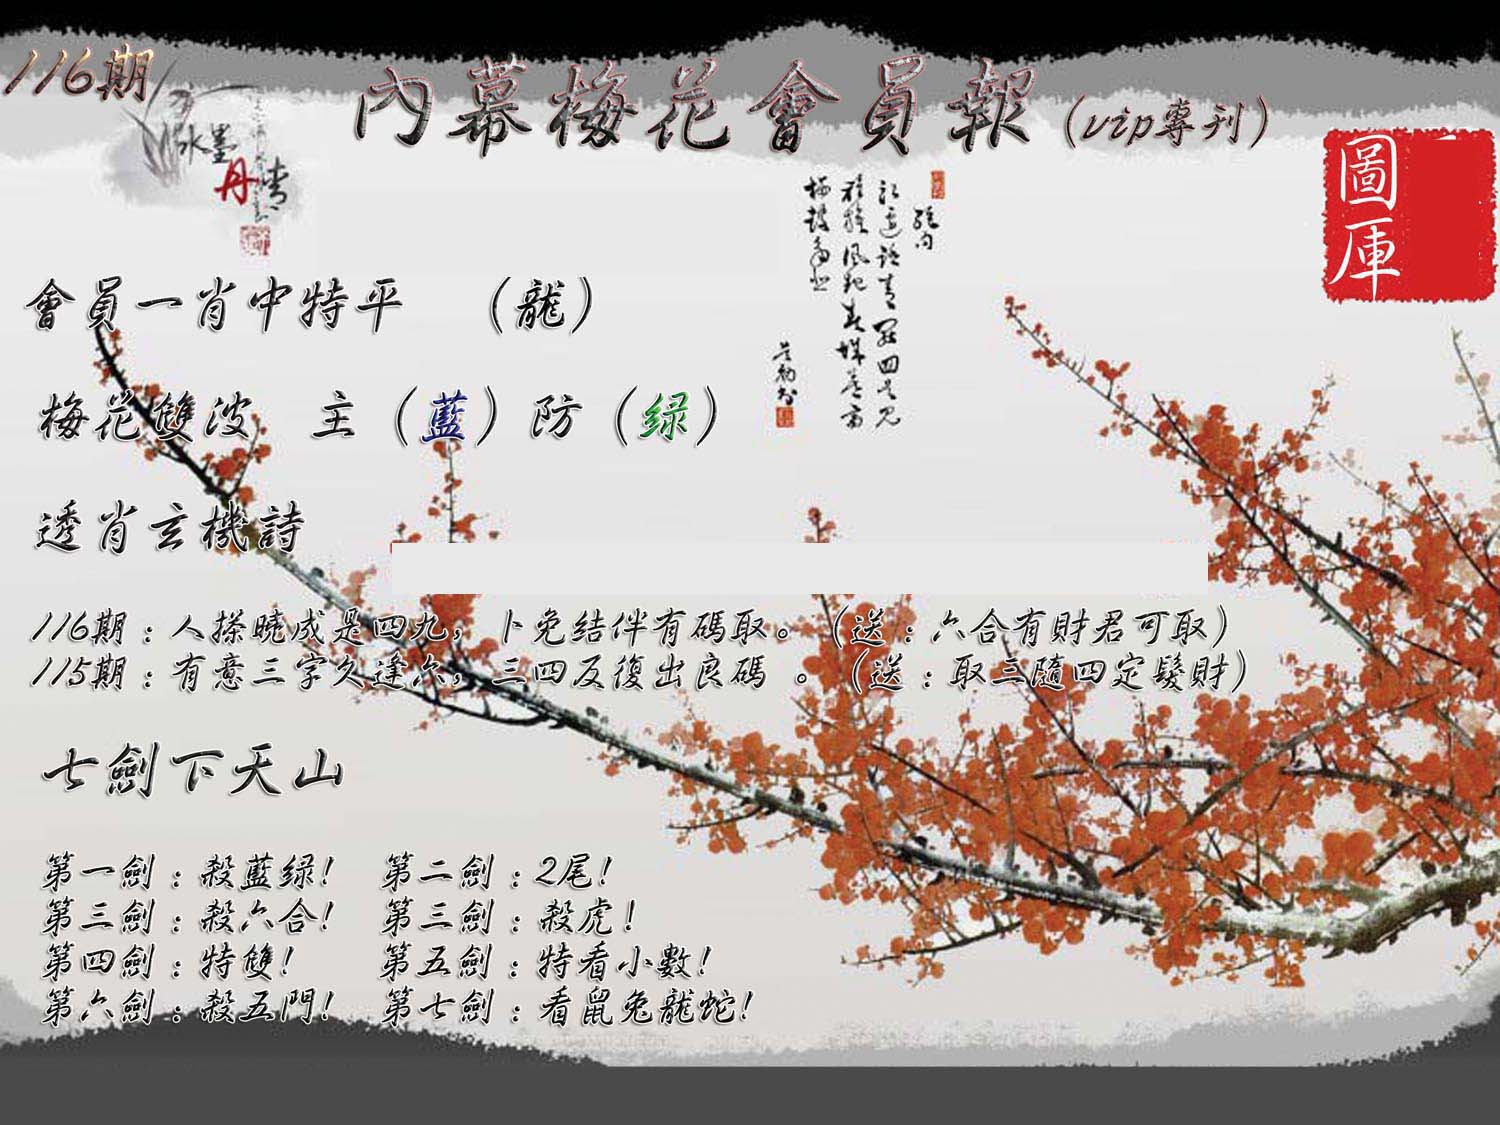 116期
內幕梅花會員報(vip專刊)
水墨
丹青
圖庫
會員一肖中特平 (龍)
梅花雙波 主(藍)防(绿)
透肖玄機詩
116期:人搽曉成是四九,卜兔结伴有碼取。(送:六合有財君可取)
115期:有意三字久逢六,三四反復出良碼 。(送:取三隨四定髮財)
七劍下天山
第一劍:殺藍绿! 第二劍:2尾!
第三劍:殺六合! 第三劍:殺虎!
第四劍:特雙! 第五劍:特看小數!
第六劍:殺五門! 第七劍:看鼠兔龍蛇!